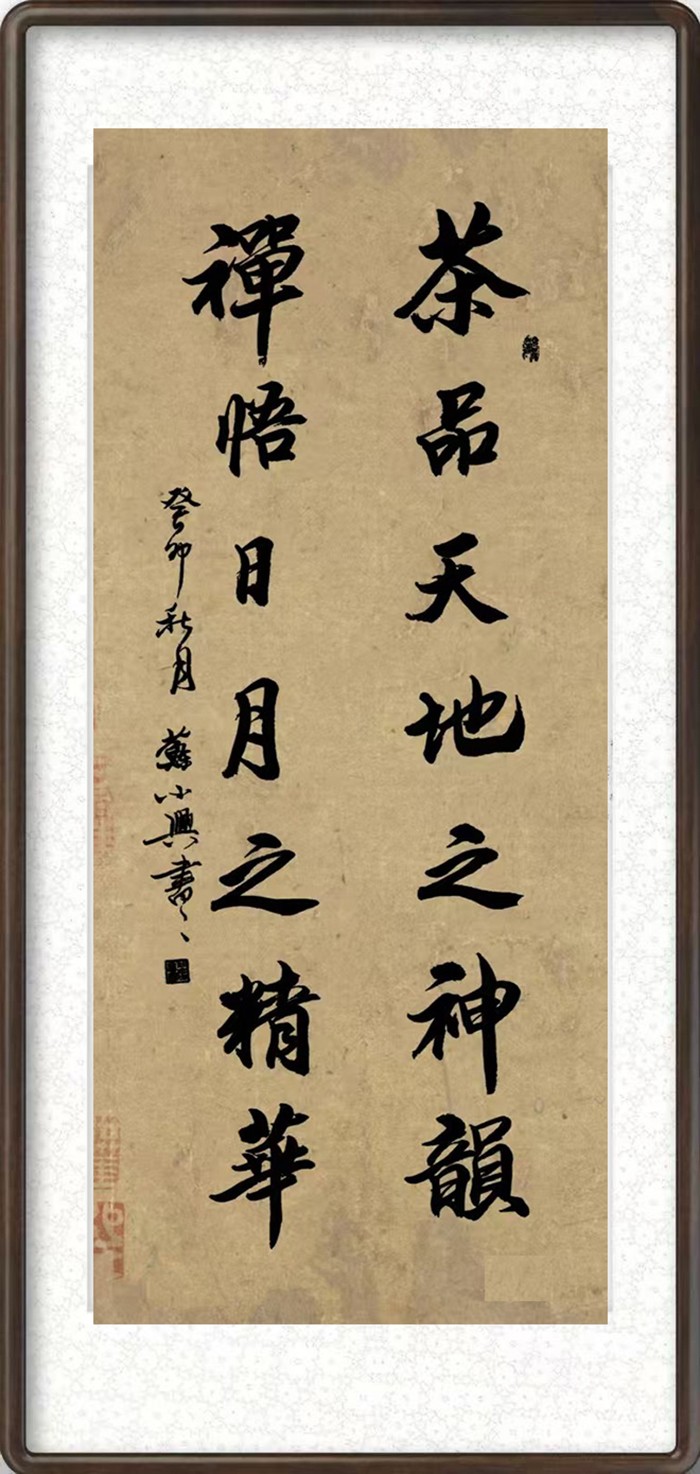 茶品天地之神韻
禪悟日月之精華
癸卯秋月 蘇小興書